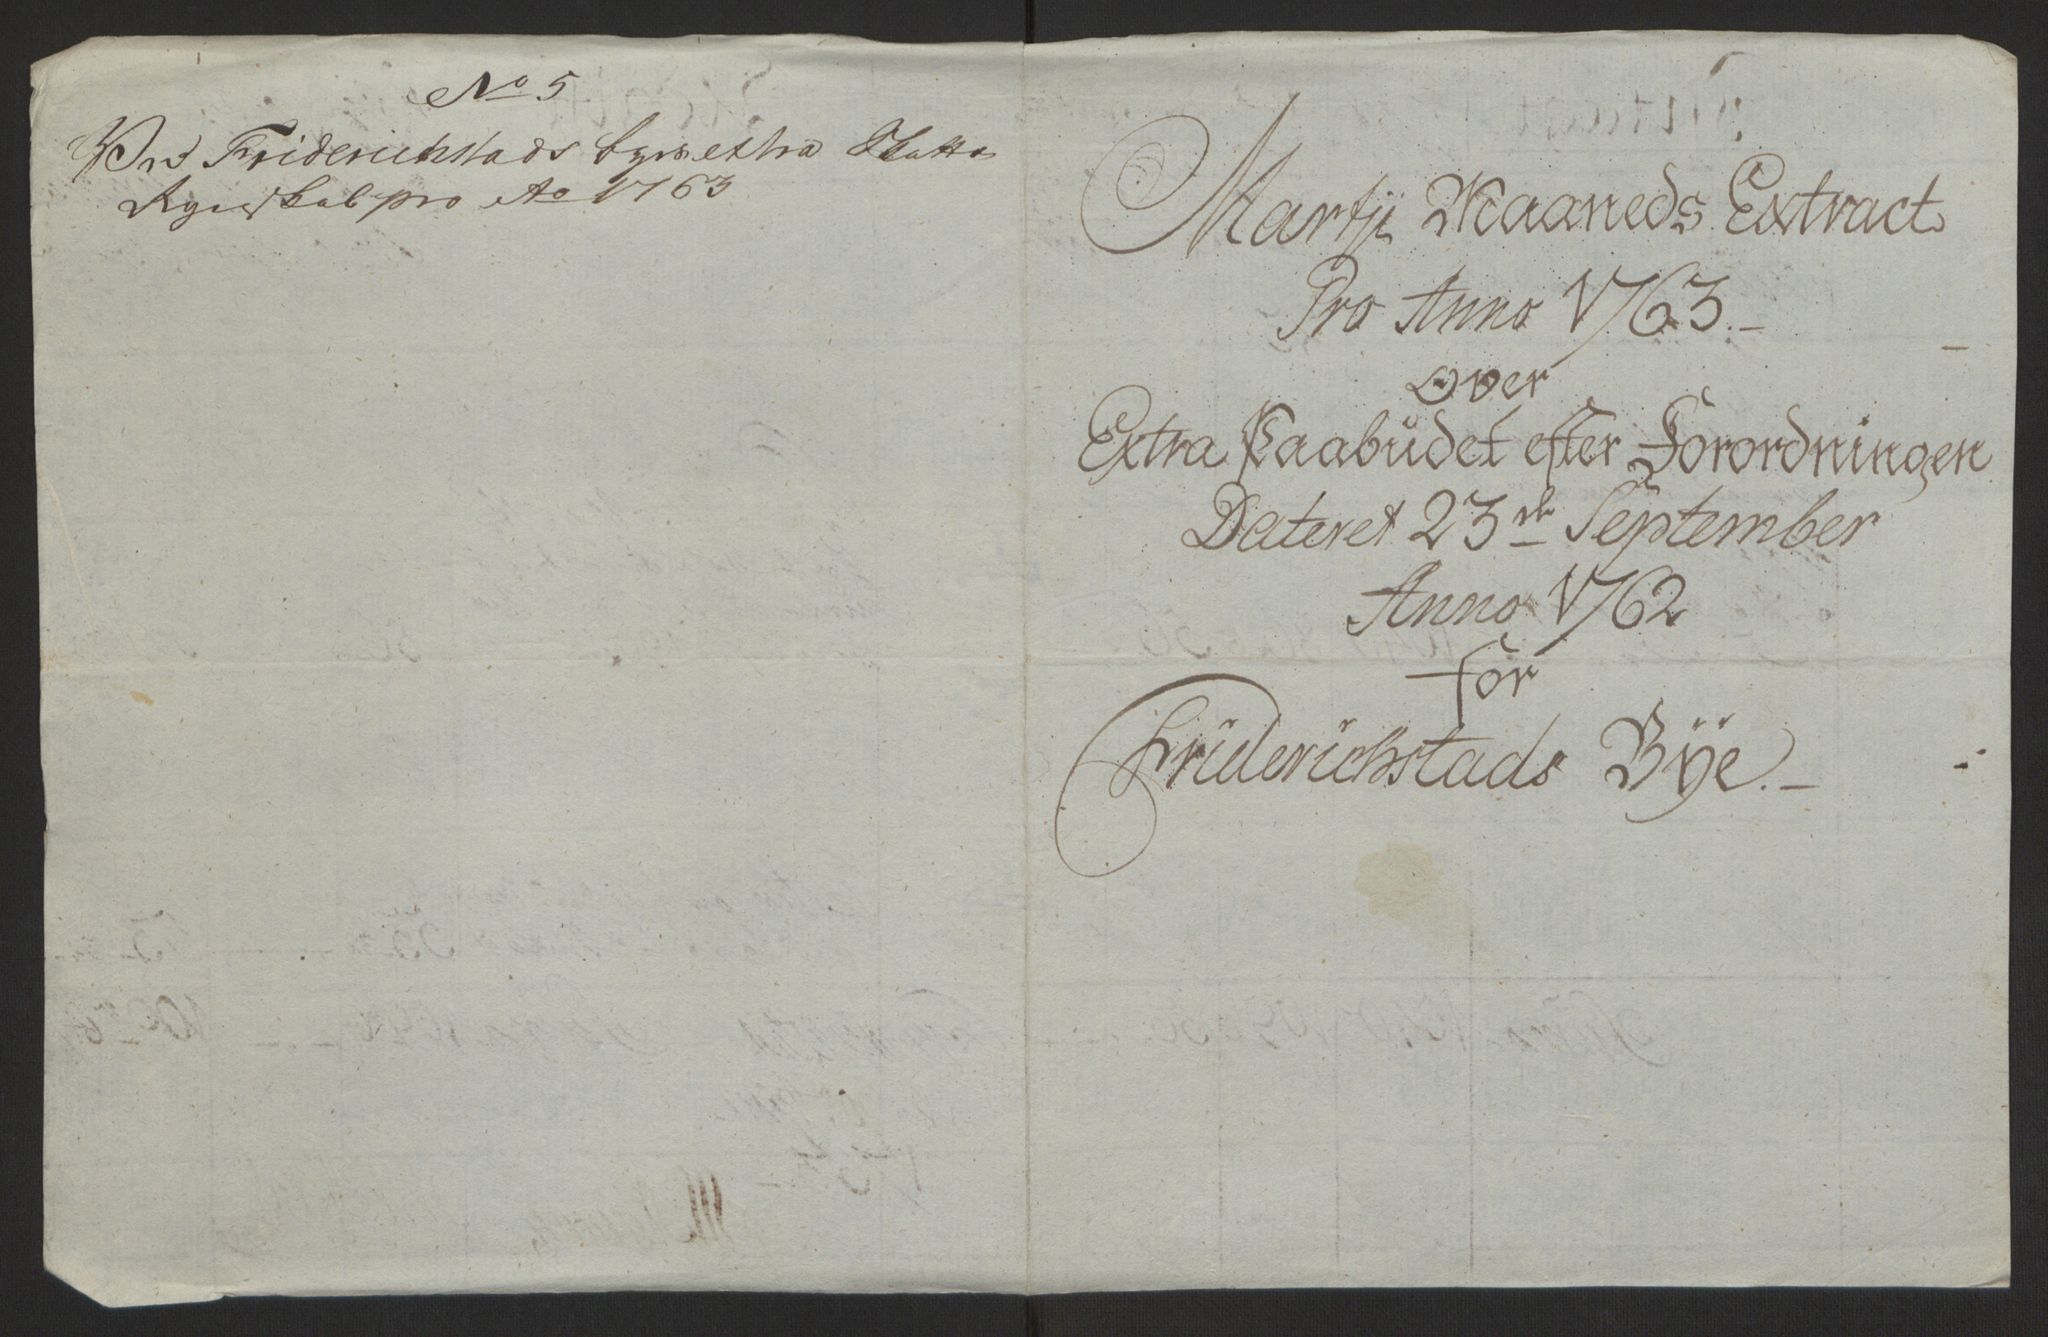 No 5
Friderichstads byes extra Skatte
Regnskab pro Ao 1763
Martji Maaneds Extract
Pro Anno 1763.-
Over
Extra Paabudet efter Forordningen
Dateret 23de September
Anno 1762
for
Friderichstads Bÿe.-